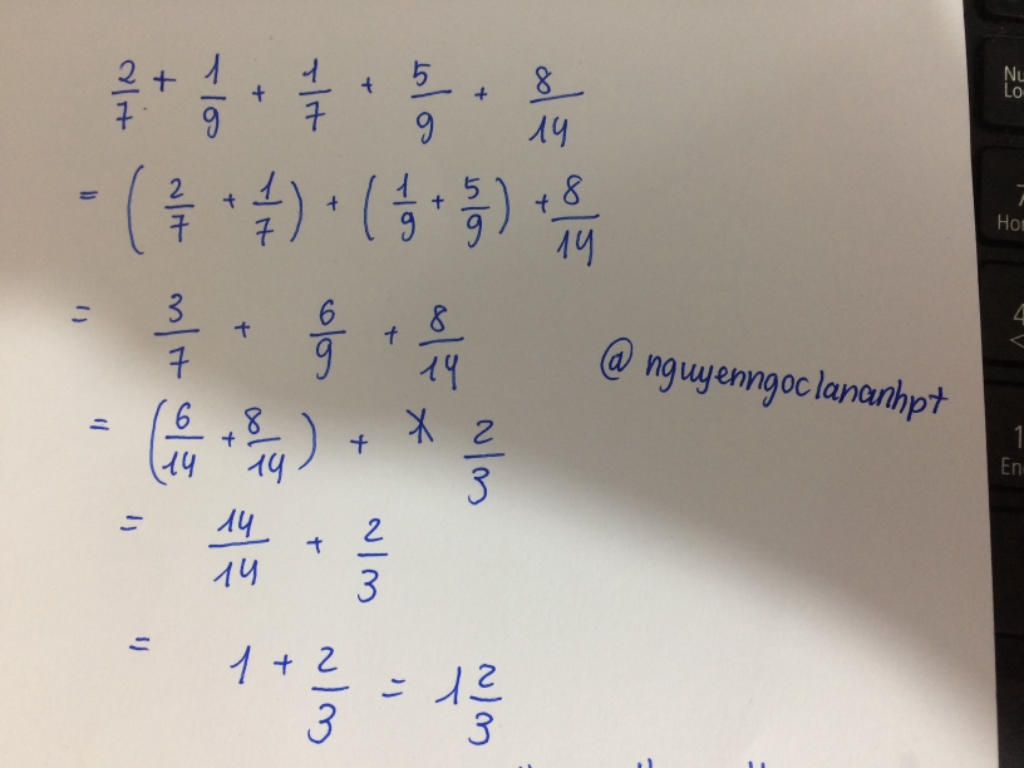 2/7 + 1/9 + 1/7 + 5/9 + 8/14
= (2/7 + 1/7) + (1/9 + 5/9) + 8/14
= 3/7 + 6/9 + 8/14
@nguyenngoclananhpt
= (6/14 + 8/14) + 2/3
= 14/14 + 2/3
= 1 + 2/3 = 1 2/3
Nu
Lo
7
Ho
4
1
En